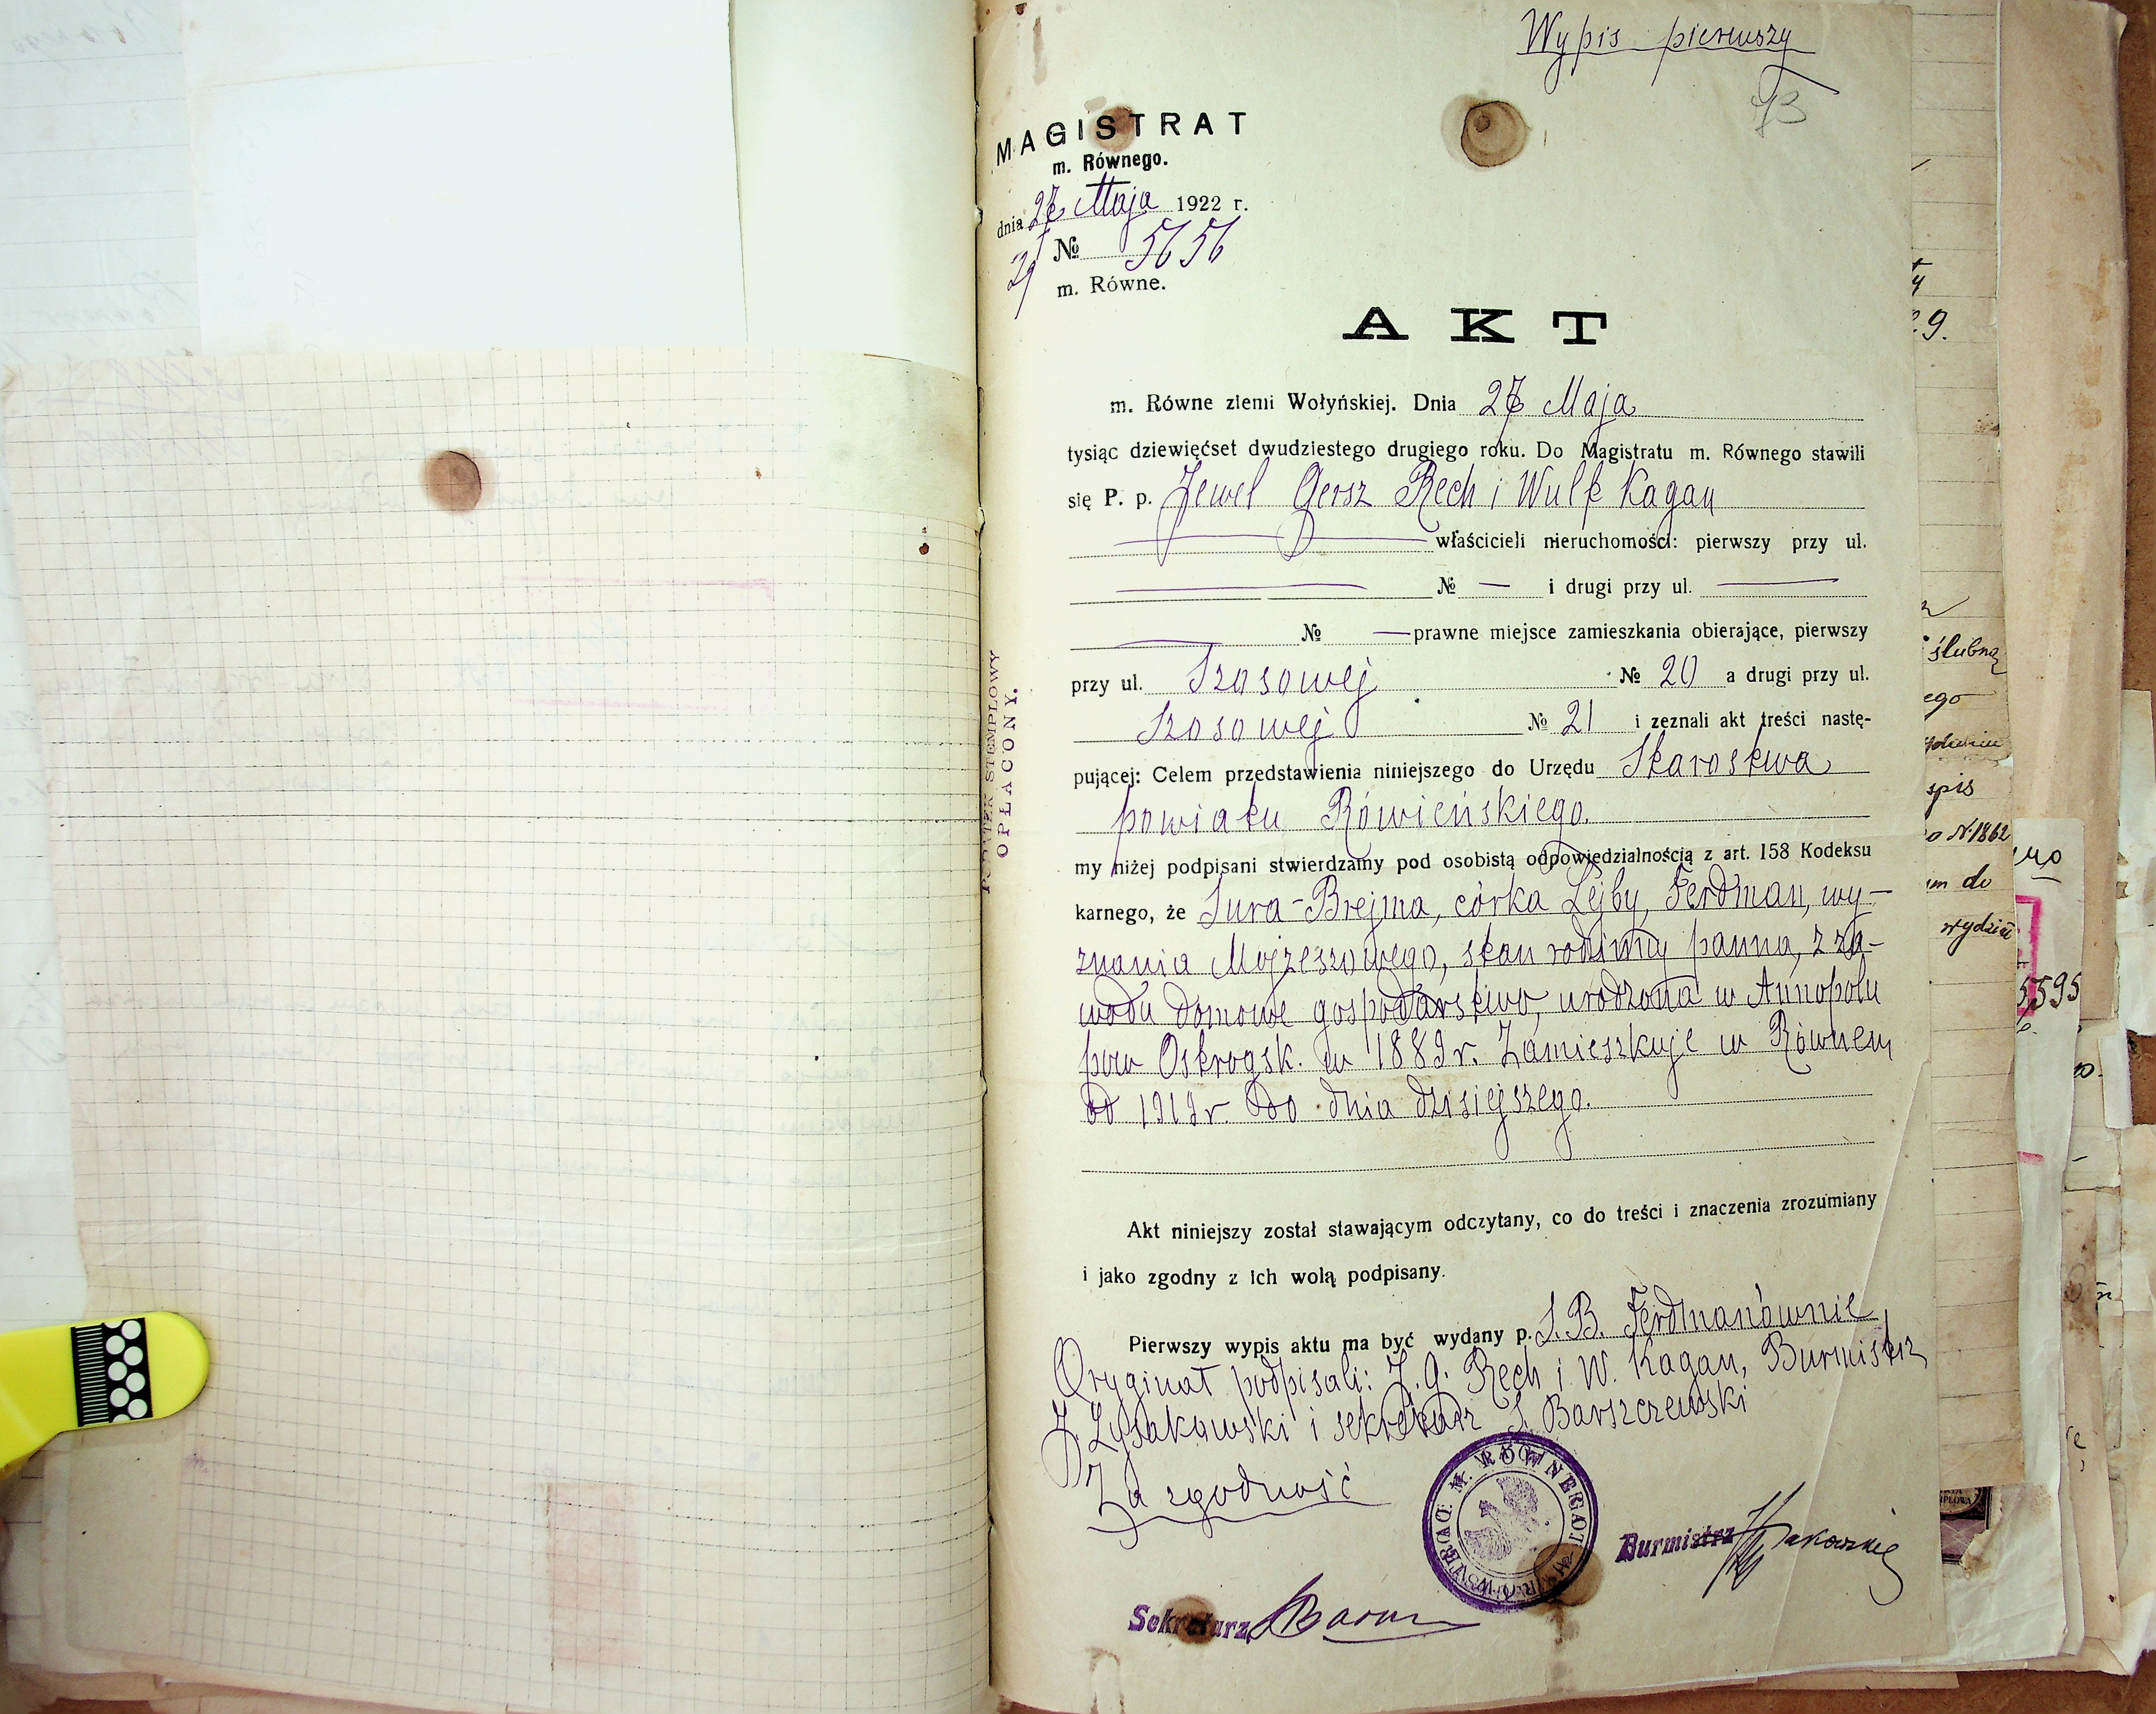 Wypis pierwszy
73
MAGISTRAT
m. Równego.
dnia 27 Maja 1922 r.
№ 5656
m. Równe.
AKT
m. Równe ziemi Wołyńskiej. Dnia 27 Maja
tysiąc dziewięćset dwudziestego drugiego roku. Do Magistratu m. Równego stawili
się P. p. Zewel Gersz Rech i Wulf Kagan
właścicieli nieruchomości: pierwszy przy ul.
№ — i drugi przy ul.
№ — prawne miejsce zamieszkania obierające, pierwszy
przy ul. Szosowej № 20 a drugi przy ul.
Szosowej № 21 i zeznali akt treści nastę-
pującej: Celem przedstawienia niniejszego do Urzędu Starostwa
powiatu Rówieńskiego.
my niżej podpisani stwierdzamy pod osobistą odpowiedzialnością z art. 158 Kodeksu
karnego, że Sura-Brejma, córka Lejby, Ferdman, wy-
znania Mojżeszowego, stan rodzinny panna, z za-
wodu domowe gospodarstwo, urodzona w Annopolu
pow Ostrogsk. w 1889 r. Zamieszkuje w Równem
od 1919 r. do dnia dzisiejszego.
Akt niniejszy został stawającym odczytany, co do treści i znaczenia zrozumiany
i jako zgodny z ich wolą podpisany.
Pierwszy wypis aktu ma być wydany p. S.B. Ferdmanównie
Oryginał podpisali: Z. G. Rech i W. Kagan, Burmistrz
Z. Łysakowski i sekretarz S. Barszczewski
Za zgodność
MAGISTRAT M. RÓWNEGO
Burmistrz
Sekretarz
PODATEK STEMPLOWY
OPŁACONY.
ślubną
ego
spis
o N.1862
do
5595